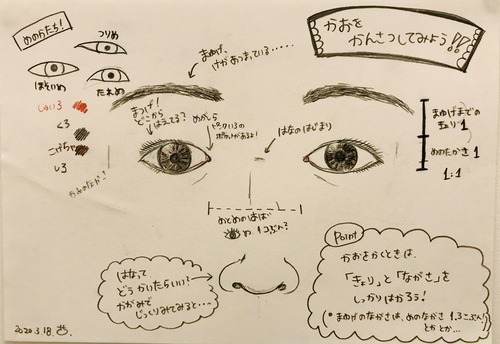 めのかたち!
つりめ
ほそいめ
たれめ
しゅいろ
くろ
こげちゃ
しろ
かおを
かんさつしてみよう!!
まゆげ、
けがあつまっている・・・・・
まつげ!
どこから
はえてる?
めがしら
ピンクいろの
ポケットがあるよ!
はなのはじまり
まゆげまでの
きょり 1
めのたかさ 1
1:1
めとめのはば
め、1つぶん?
はなって、
どうかいたらいい?
かがみで
じっくりみてみると・・・
Point
かおをかくときは、
「きょり」と「ながさ」を
しっかりはかろう!
(*まゆげのながさは、めのながさ 1.3こぶん!
とかとか・・・
2020.3.18.